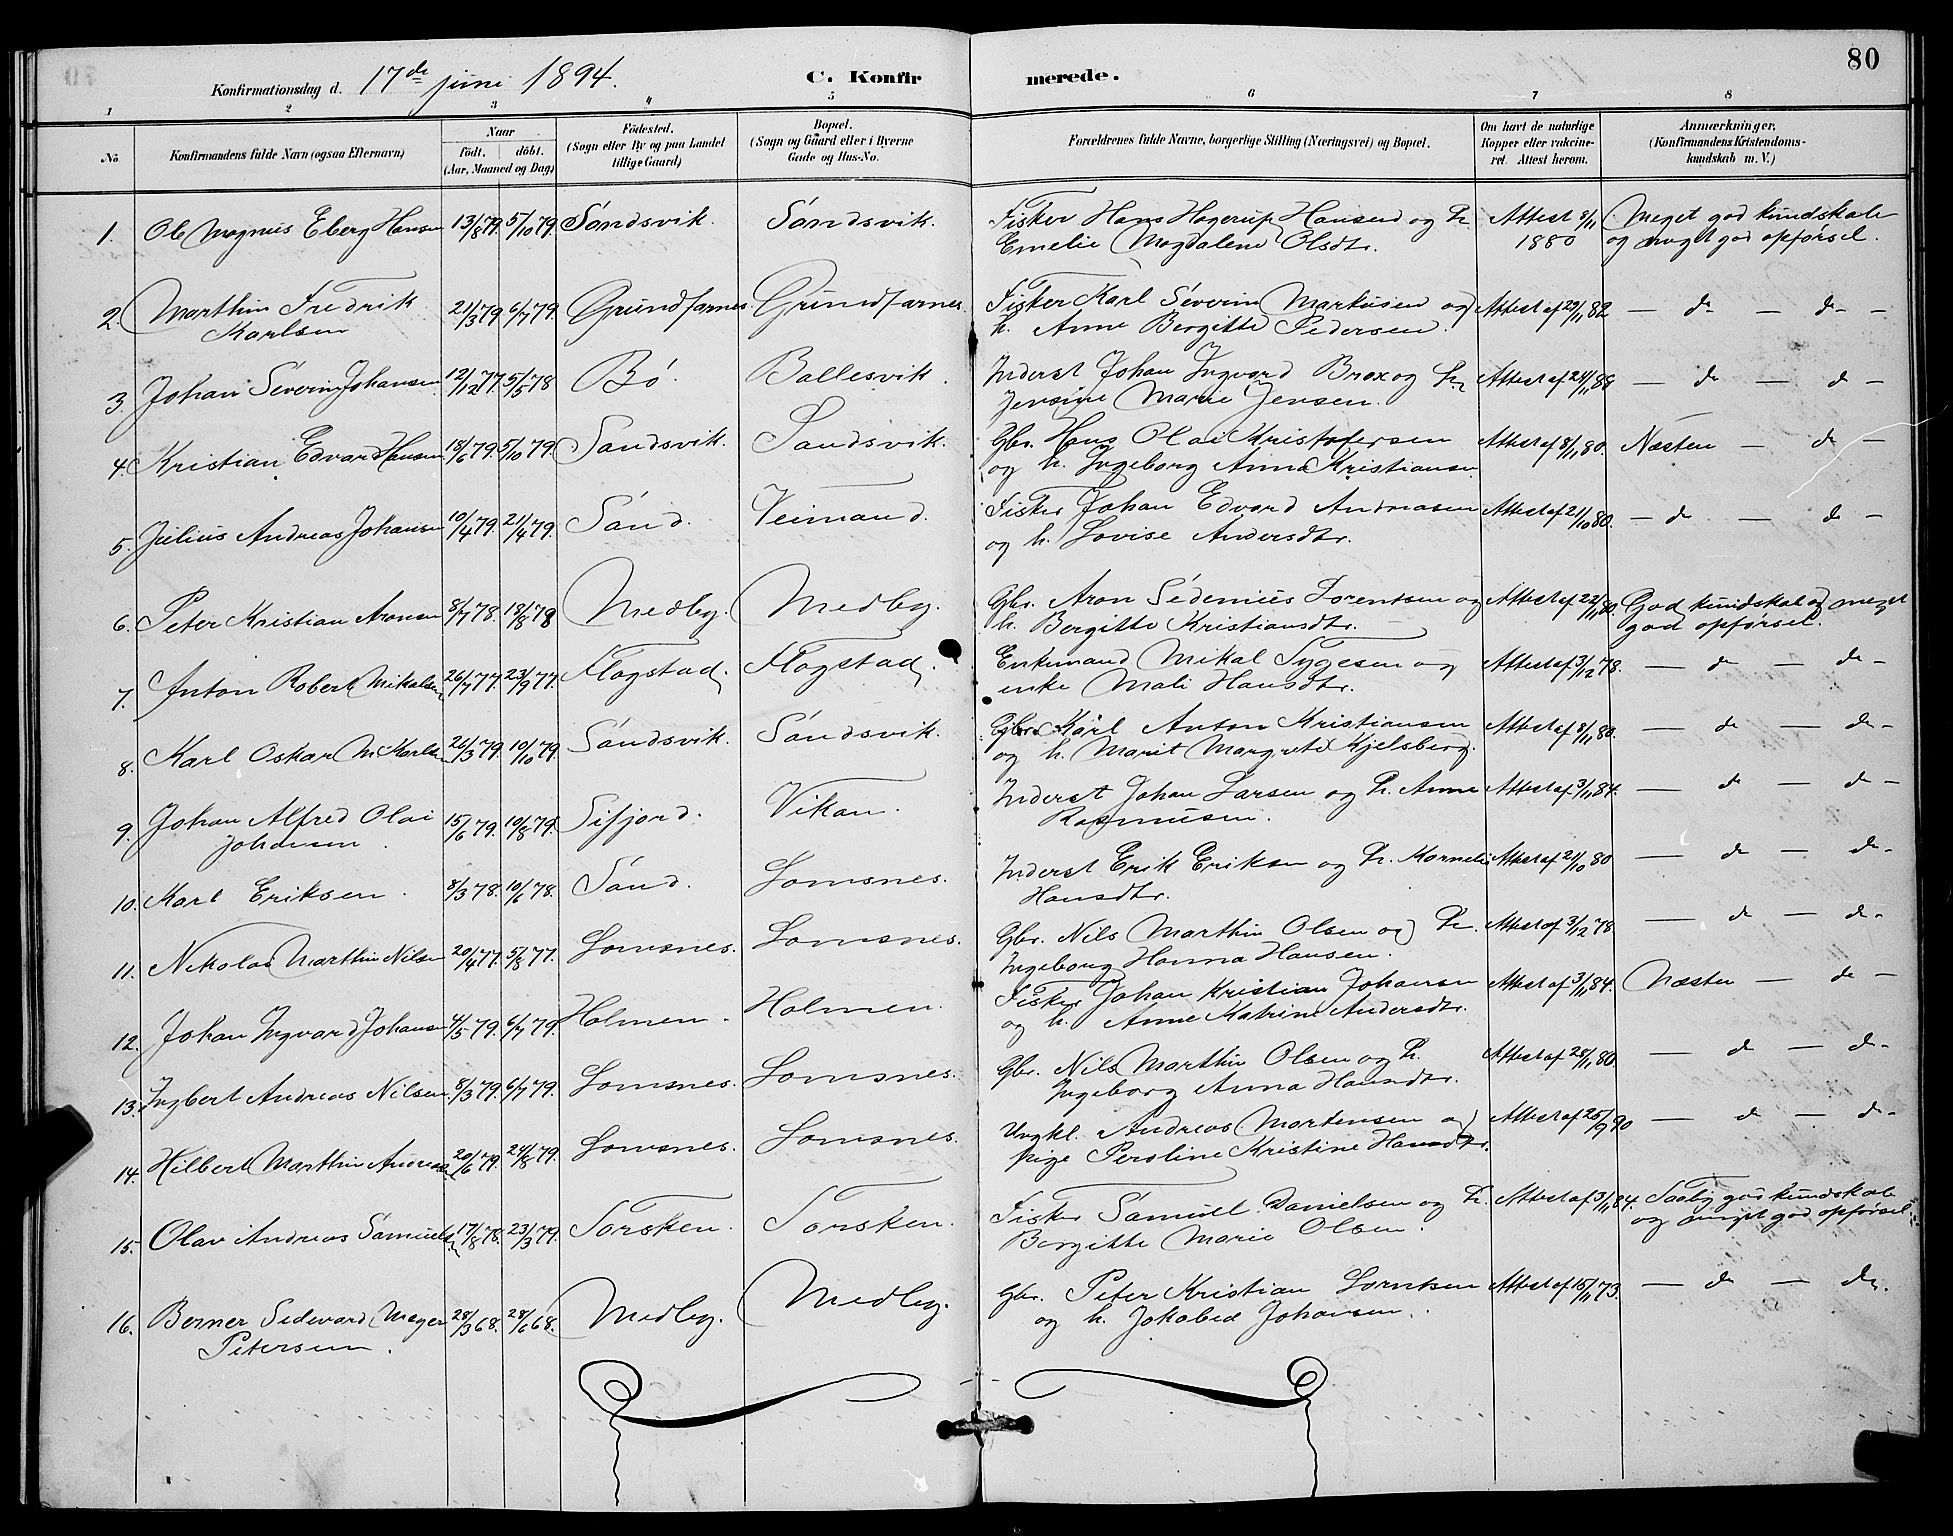 80
Konfirmationsdag d. 17de juni 1894.
C. Konfirmerede.
1 2 3 4 5 6 7 8
No
Konfirmandens fulde Navn (ogsaa Efternavn)
Naar
født. døbt.
(Aar, Maaned og Dag)
Fødested.
(Sogn eller By og paa Landet
tillige Gaard)
Bopæl.
(Sogn og Gaard eller i Byerne
Gade og Hus-No.
Forældrenes fulde Navne, borgerlige Stilling (Næringsvei) og Bopæl.
Om havt de naturlige
Kopper eller vakcine-
ret. Attest herom.
Anmærkninger.
(Konfirmandens Kristendoms-
kundskab m. V.)
1. Ole Magnus Eberg Hansen 13/8 79. 5/10 79. Sandsvik. Sandsvik. Fisker Hans Hagerup Hansen og h. Attest 8/11 Meget god kundskab
Emelie Magdalene Olsdtr. 1880 og meget god opførsel.
2. Marthin Fredrik 21/3 79 6/7 79. Grundfarnes. Grundfarnes. Fisker Karl Severin Markusen og Attest af 29/11 82 — do — do —
Karlsen h. Anne Bergitte Pedersen.
3. Johan Severin Johansen 12/12 77. 5/5 78 Bø. Ballesvik. Inderst Johan Ingvard Brox og h. Attest af 24/11 88 — do — do —
Jensine Marie Jensen.
4. Kristian Edvard Hansen 18/6 79. 5/10 79. Sandsvik. Sandsvik. Gbr. Hans Olai Kristofersen Attest af 8/11 80. Næsten — do —
og h. Ingeborg Anna Kristiansen
5. Julius Andreas Johansen 10/4 79. 21/4 79. Sand. Veimand. Fisker Johan Edvard Andreasen Attest af 21/10 80. — do — do —
og h. Lovise Andersdtr.
6. Peter Kristian Aronsen 8/7 78. 18/8 78 Medby. Medby. Gbr. Aron Sedenius Lorentsen og Attest af 22/11 80. God kundskab og meget
h. Bergitte Kristiansdtr. god opførsel.
7. Anton Robert Mikalsen 26/7 77. 23/9 77. Flagstad. Flagstad. Enkemand Mikal Tygesen og Attest af 3/12 78. — do — do —
enke Mali Hansdtr.
8. Karl Oskar M. Karlsen 26/3 79. 10/10 79. Sandsvik. Sandsvik. Gbr. Karl Anton Kristiansen Attest af 8/11 80. — do — do —
og h. Marit Margrete Kjelsberg.
9. Johan Alfred Olai 15/6 79. 10/8 79. Sifjord. Vikan. Inderst Johan Larsen og h. Anne Attest af 3/11 84. — do — do —
Johansen. Rasmusen.
10. Karl Eriksen. 8/3 78. 10/6 78. Sand. Lomsnes. Inderst Erik Eriksen og h. Kornelie Attest af 21/10 80 — do — do —
Hansdtr.
11. Nikolai Marthin Nilsen 20/4 77. 5/8 77. Lomsnes. Lomsnes. Gbr. Nils Marthin Olsen og h. Attest af 3/12 78 — do — do —
Ingeborg Hanna Hansen.
12. Johan Ingvard Johansen 4/5 79. 6/7 79. Holmen. Holmen. Fisker Johan Kristian Johansen Attest af 3/11 84. Næsten — do —
og h. Anne Katrine Andersdtr.
13. Ingbert Andreas Nilsen 8/3 79. 6/7 79. Lomsnes. Lomsnes. Gbr. Nils Marthin Olsen og h. Attest af 28/11 80. — do — do —
Ingeborg Anna Hansdtr.
14. Hilbert Marthin Andreasen 20/6 79. 24/8 79. Lomsnes. Lomsnes. Ungkl. Andreas Mortensen og Attest af 25/9 90 — do — do —
pige Peroline Kristine Hansdtr.
15. Olav Andreas Samuelsen 17/8 78. 23/3 79. Torsken. Torsken. Fisker Samuel Danielsen og h. Attest af 3/11 84. Taaby god kundskab
Bergitte Marie Olsen. og meget god opførsel.
16. Berner Sedevard Meyer 28/3 68. 28/6 68. Medby. Medby. Gbr. Peter Kristian Lorntsen Attest af 15/11 73. — do — do.
Petersen. og h. Jokobea Johansen.